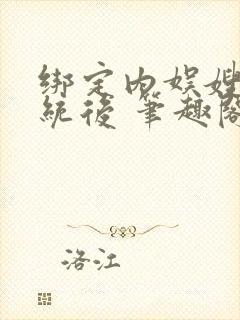 绑定内娱嫂
统后 笔趣阁
洛江